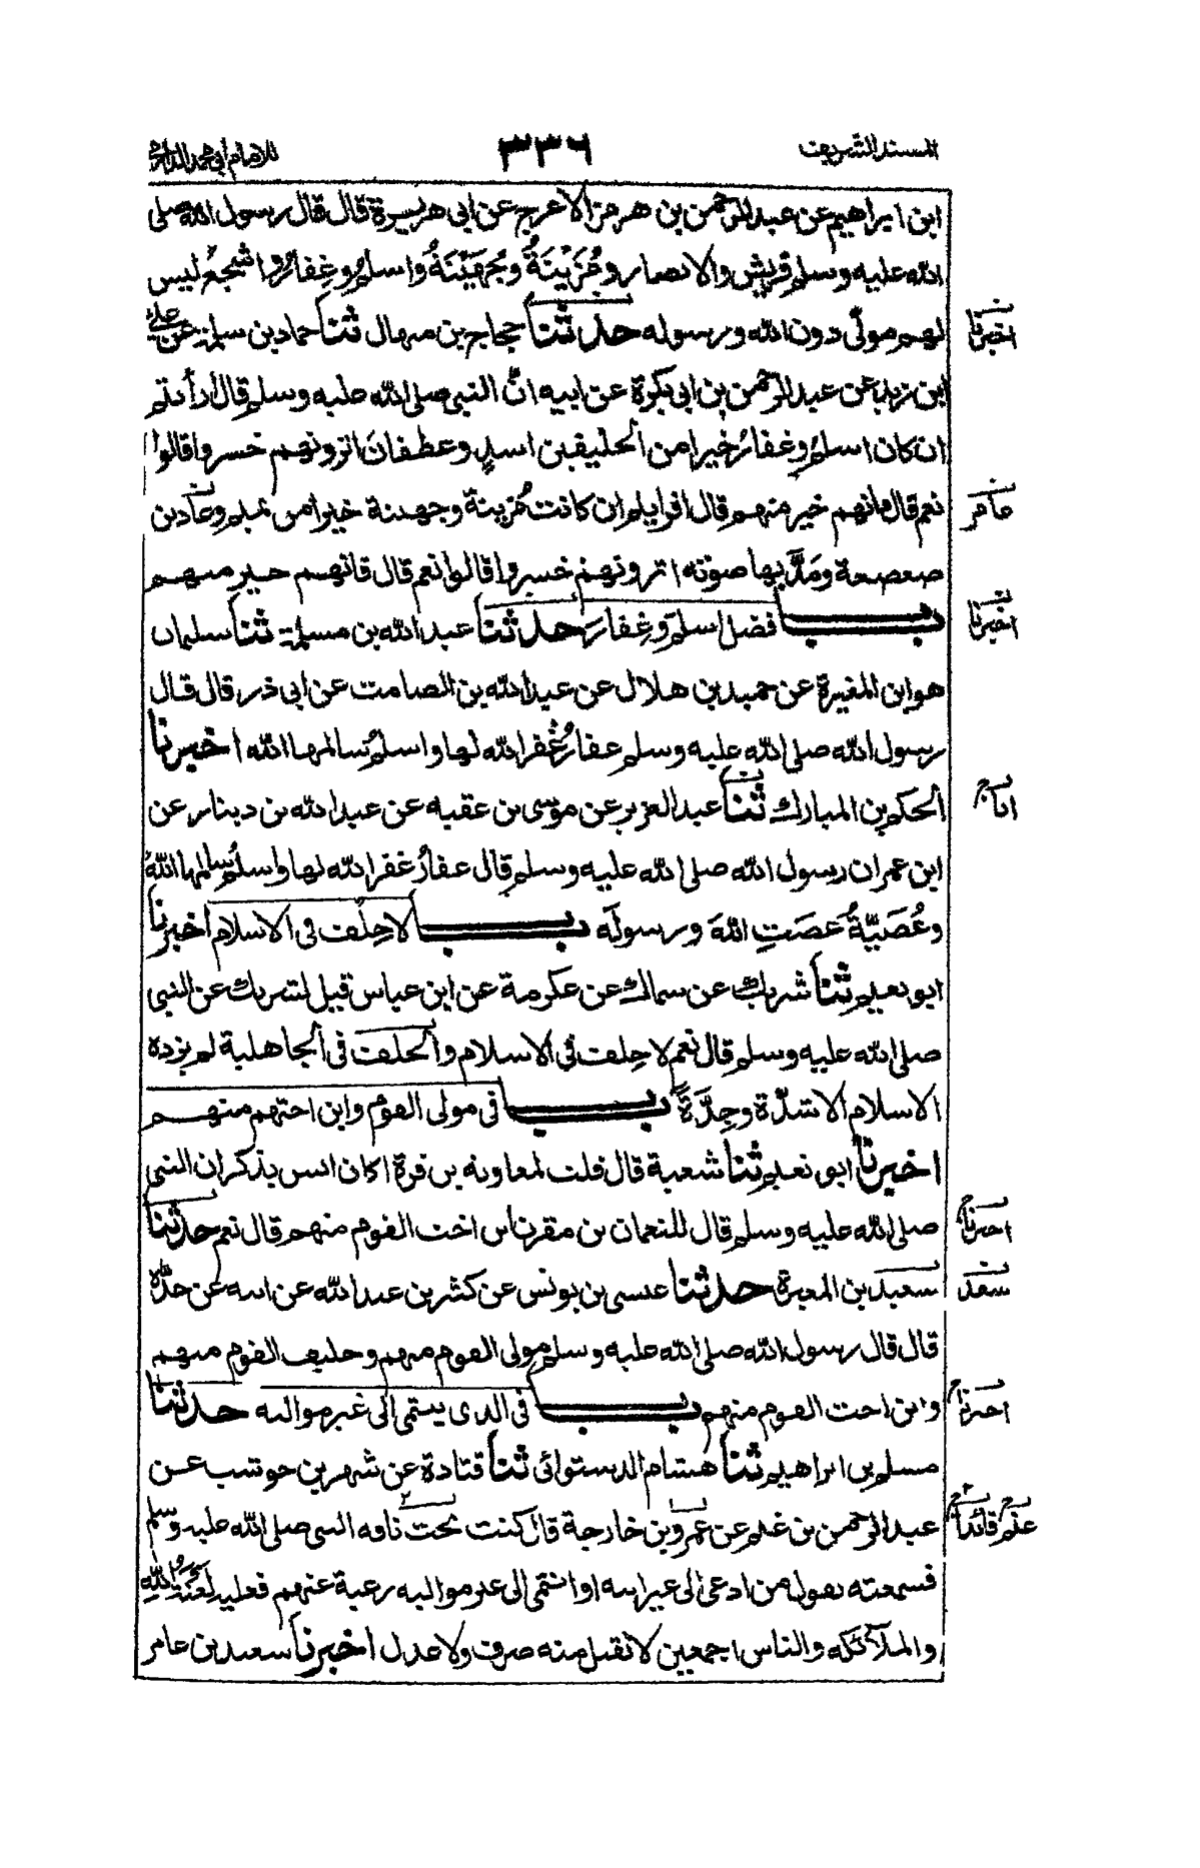 المسند الشريف
٣٣٦
للامام ابى محمد الدارمى
ابن ابراهيم عن عبد الرحمن بن هرمز الاعرج عن ابى هريرة قال قال رسول الله صلى
الله عليه وسلم قريش والانصار ومُزَيْنَةُ وجُهَيْنَةُ واسلمُ وغِفارُ واشجعُ ليس
لهم مولًى دون الله ورسوله حدثنا حجاج بن منهال ثنا حماد بن سلمة عن على
اخبرنا
ابن زيد عن عبد الرحمن بن ابى بكرة عن ابيه انّ النبى صلى الله عليه وسلم قال أرأيتم
ان كان اسلمُ وغفارُ خيرا من الحليفين اسدٍ وغطفانَ اترونهم خسروا قالوا
نعم قال فانهم خير منهم قال افرايتم ان كانت مُزينة وجهينة خيرا من تميم وعاد بن
عامر
صعصعة ومَدَّ بها صوته اترونهم خسروا قالوا نعم قال فانهم خير منهم
بـــــاب فضل اسلم وغِفارَ حدثنا عبد الله بن مسلمة ثنا سليمان
اخبرنا
هو ابن المغيرة عن حميد بن هلال عن عبد الله بن الصامت عن ابى ذر قال قال
رسول الله صلى الله عليه وسلم غفارُ غفر الله لها واسلمُ سالمها الله اخبرنا
الحكم بن المبارك ثنا عبد العزيز عن موسى بن عقبة عن عبد الله بن دينار عن
انا
ابن عمر ان رسول الله صلى الله عليه وسلم قال غفارُ غفر الله لها واسلمُ سالمها اللهُ
وعُصَيّةُ عَصَتِ اللهَ ورسولَه بـــــاب لا حِلْف فى الاسلام اخبرنا
ابو نعيم ثنا شريك عن سماك عن عكرمة عن ابن عباس قيل لشريك عن النبى
صلى الله عليه وسلم قال نعم لا حِلف فى الاسلام والحلف فى الجاهلية لم يزده
الاسلام الا شدّة وجِدَّةً بـــــاب فى مولى القوم وابن اختهم منهم
اخبرنا ابو نعيم ثنا شعبة قال قلت لمعاوية بن قرة اكان انس يذكر ان النبى
صلى الله عليه وسلم قال للنعمان بن مقرن ابن اخت القوم منهم قال نعم حدثنا
اخبرنا
سعيد بن المغيرة حدثنا عيسى بن يونس عن كثير بن عبد الله عن ابيه عن جدّه
سعد
قال قال رسول الله صلى الله عليه وسلم مولى القوم منهم وحليف القوم منهم
وابن اخت القوم منهم بـــــاب فى الذى ينتمى الى غير مواليه حدثنا
اخبرنا
مسلم بن ابراهيم ثنا هشام الدستوائى ثنا قتادة عن شهر بن حوشب عن
عبد الرحمن بن غنم عن عمرو بن خارجة قال كنت تحت ناقة النبى صلى الله عليه وسلم
فسمعته يقول من ادعى الى غير ابيه او انتمى الى غير مواليه رغبة عنهم فعليه لَعْنَةُ اللهِ
والملائكة والناس اجمعين لا يقبل منه صرف ولا عدل اخبرنا سعيد بن عامر